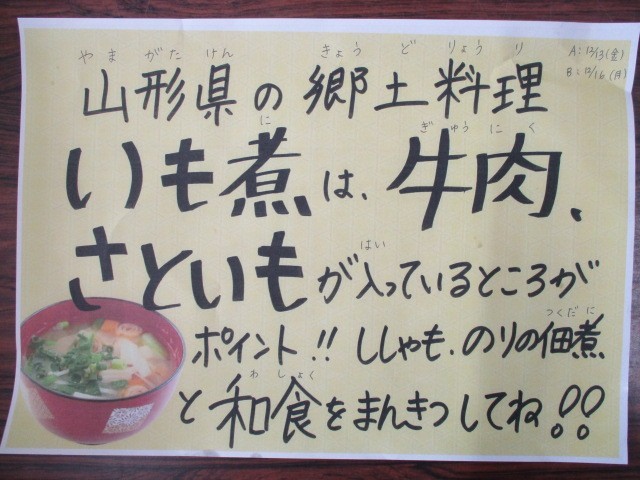 A：12/13(金)
B：12/16(月)
やまがたけん きょうどりょうり
山形県の郷土料理
に ぎゅうにく
いも煮は、牛肉、
はい
さといもが入っているところが
つくだに
ポイント!! ししゃも、のりの佃煮
わしょく
と和食をまんきつしてね!!